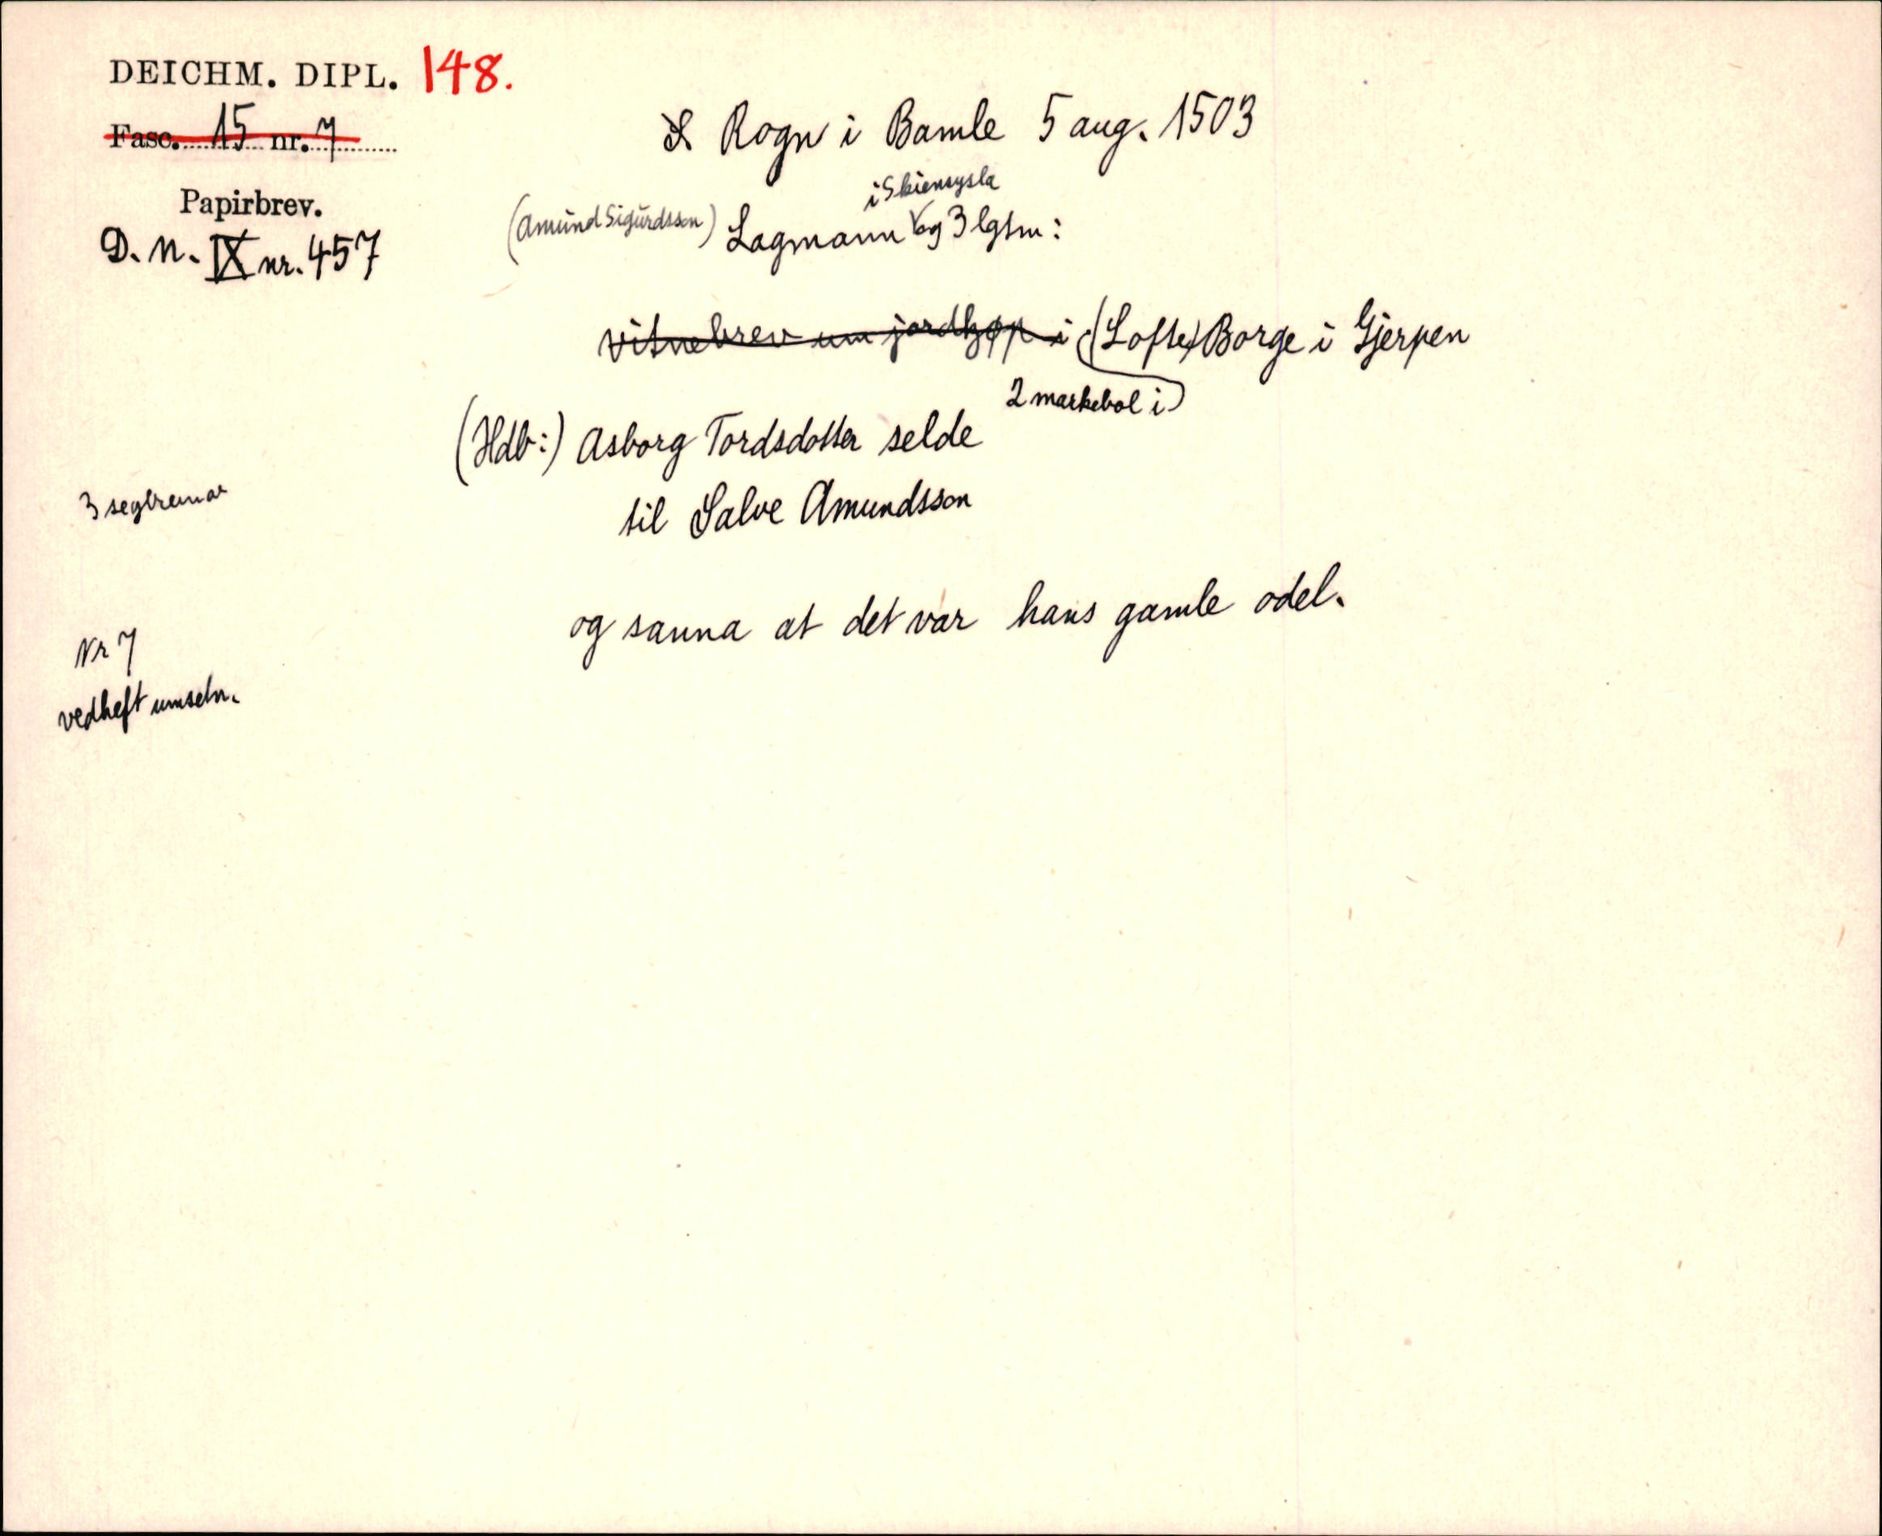 DEICHM. DIPL. 148.
Fasc. 15 nr. 7
Papirbrev.
D. N. IX nr. 457
Rogn i Bamle 5 aug. 1503
i Skiensysla
(Amund Sigurdsson) Lagmann og 3 lgtm:
vitnebrev um jordkjøp i (Lofte) Borge i Gjerpen
2 markebol i
(Hdb:) Asborg Tordsdotter selde
til Salve Amundsson
3 segbremar
og sanna at det var hans gamle odel.
Nr 7
vedheft umseln.